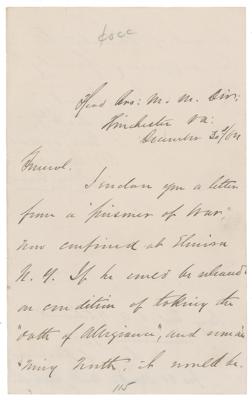 Head Qrs: M. M. Div:
Winchester Va:
December 30/64
General.
I inclose you a letter
from a "prisoner of War,"
now confined at Elmira
N. Y. If he could be released
on condition of taking the
"oath of Allegiance", and remain
ing North, it would be
115